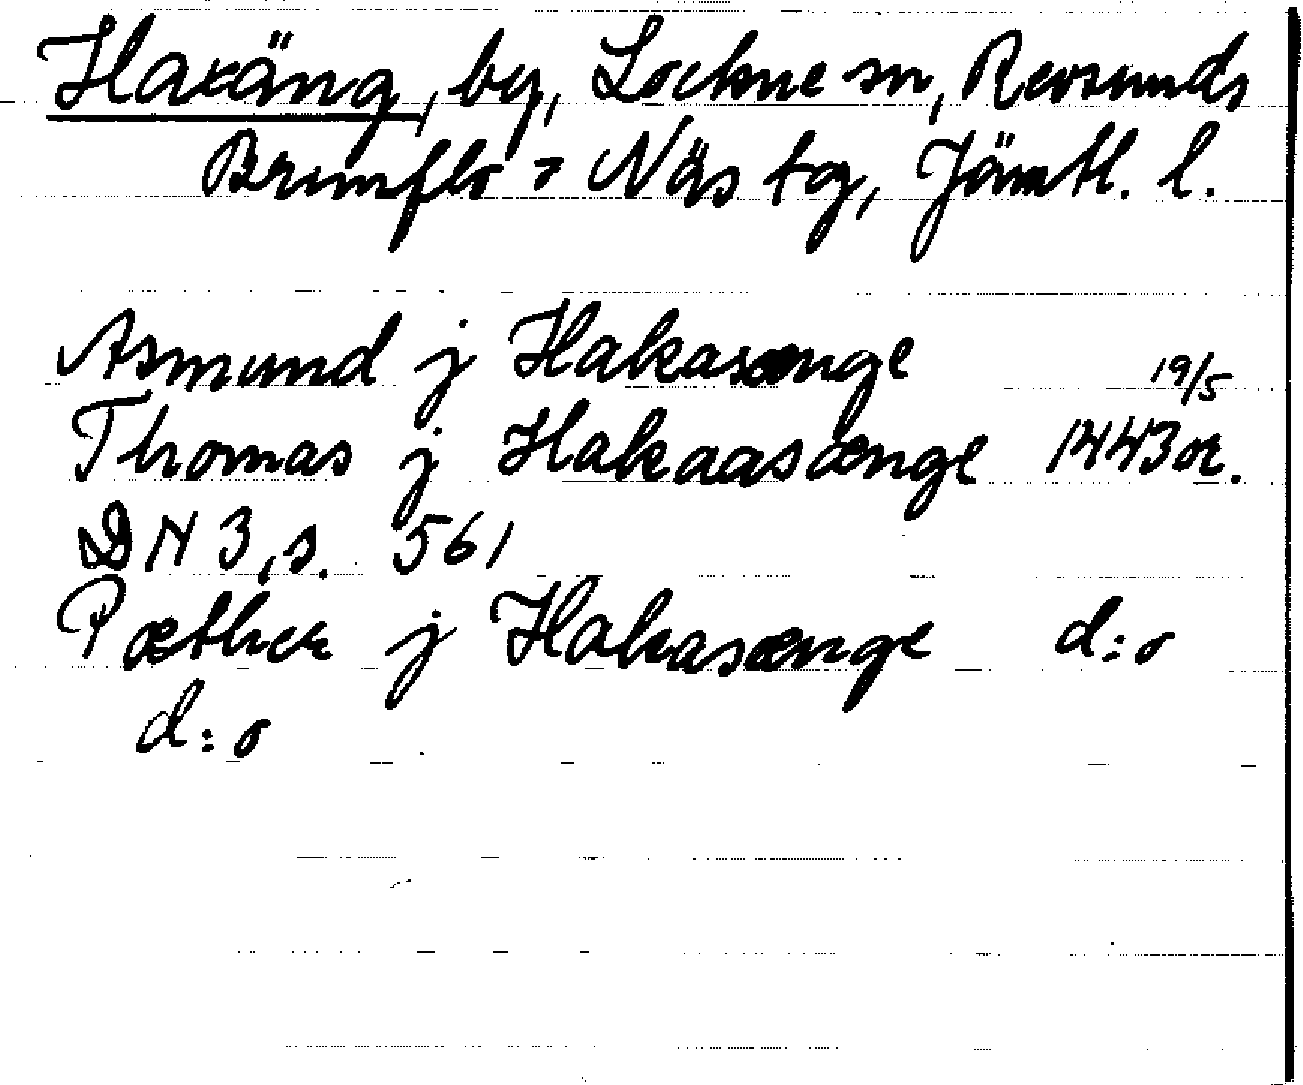 Haxäng, by, Lockne sn, Revsunds
Brunflo o Näs tg, Jämtl. l.
Asmund j Hakasænge
19/5
Thomas j Hakaasænge 1443 or.
DN 3, s. 561
Pæther j Hakasænge d:o
d:o